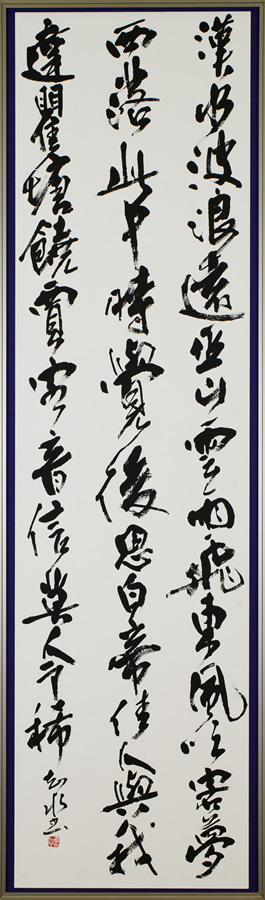 漢水波浪遠巫山雲雨飛東風吹客夢
西落此中時覺後思白帝佳人與我
違瞿塘饒賈客音信莫令稀